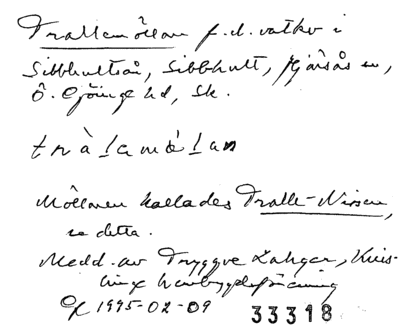 Trallemöllan f.d. vattkv i
Sibbhultsån, Sibbhult, Hjärsås sn,
Ö. Göinge hd, Sk.
tràlamö́lan
Möllaren kallades Tralle-Nissen,
se detta.
Medd. av Tryggve Zahger, Knis-
linge hembygdsförening
Of 1995-02-09 33318